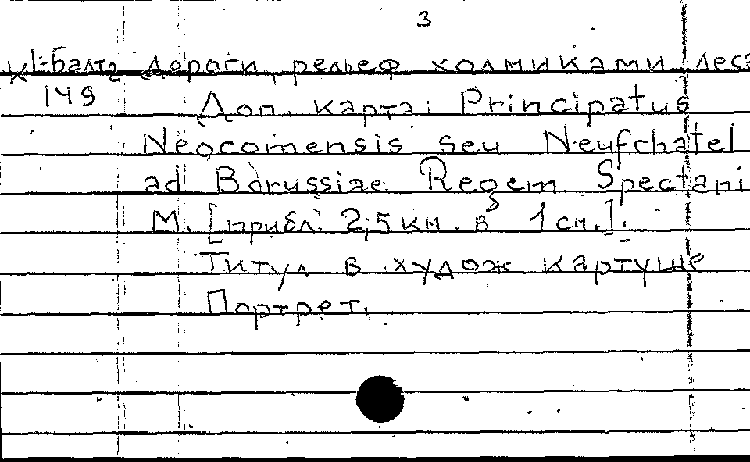 3
дороги, рельеф холмиками, леса
149 Доп. карта: Principatus
Neocomensis seu Neufchatel
ad Borussiae Regem Spectani
М. [прибл. 2,5 км. в 1 см.].
Титул в худож картуше
Портрет.